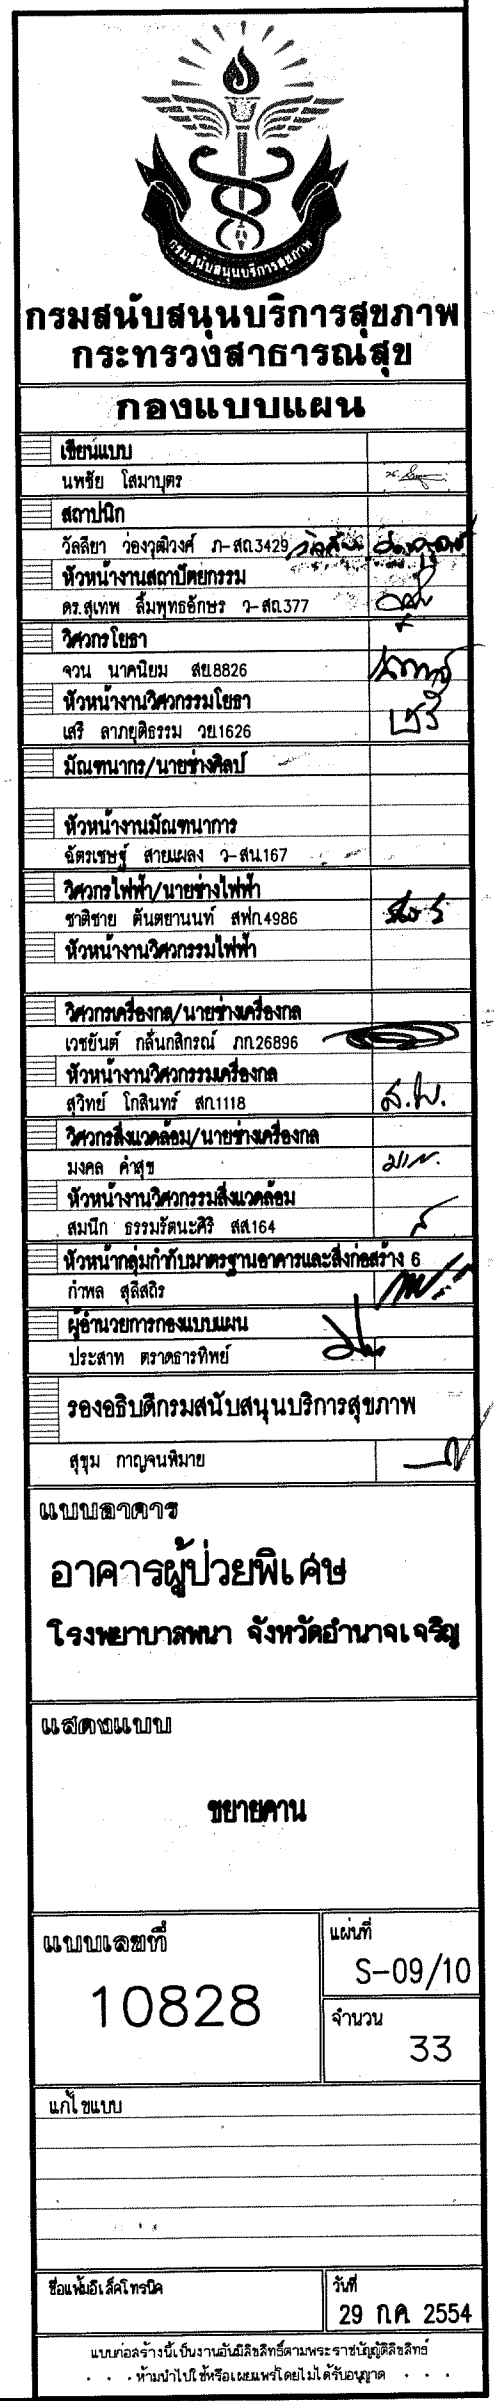 กรมสนับสนุนบริการสุขภาพ
กรมสนับสนุนบริการสุขภาพ
กระทรวงสาธารณสุข
กองแบบแผน
เขียนแบบ
นพชัย โสมาบุตร
สถาปนิก
วัลลียา ว่องวุฒิวงศ์ ภ-สถ.3429
หัวหน้างานสถาปัตยกรรม
ดร.สุเทพ ลิ้มพุทธอักษร ว-สถ.377
วิศวกรโยธา
จวน นาคนิยม สย.8826
หัวหน้างานวิศวกรรมโยธา
เสรี ลาภยุติธรรม วย.1626
มัณฑนากร/นายช่างศิลป์
หัวหน้างานมัณฑนาการ
ฉัตรเชษฐ์ สายแผลง ว-สน.167
วิศวกรไฟฟ้า/นายช่างไฟฟ้า
ชาติชาย ตันตยานนท์ สฟก.4986
หัวหน้างานวิศวกรรมไฟฟ้า
วิศวกรเครื่องกล/นายช่างเครื่องกล
เวชยันต์ กลั่นกสิกรณ์ ภก.26896
หัวหน้างานวิศวกรรมเครื่องกล
สุวิทย์ โกสินทร์ สก.1118
วิศวกรสิ่งแวดล้อม/นายช่างเครื่องกล
มงคล คำสุข
หัวหน้างานวิศวกรรมสิ่งแวดล้อม
สมนึก ธรรมรัตนะศิริ สส.164
หัวหน้ากลุ่มกำกับมาตรฐานอาคารและสิ่งก่อสร้าง 6
กำพล สุลีสถิร
ผู้อำนวยการกองแบบแผน
ประสาท ตราดธารทิพย์
รองอธิบดีกรมสนับสนุนบริการสุขภาพ
สุขุม กาญจนพิมาย
แบบอาคาร
อาคารผู้ป่วยพิเศษ
โรงพยาบาลพนา จังหวัดอำนาจเจริญ
แสดงแบบ
ขยายคาน
แบบเลขที่
แผ่นที่
S-09/10
10828
จำนวน
33
แก้ไขแบบ
ชื่อแฟ้มอิเล็คโทรนิค
วันที่
29 ก.ค. 2554
แบบก่อสร้างนี้เป็นงานอันมีลิขสิทธิ์ตามพระราชบัญญัติลิขสิทธิ์
ห้ามนำไปใช้หรือเผยแพร่โดยไม่ได้รับอนุญาต